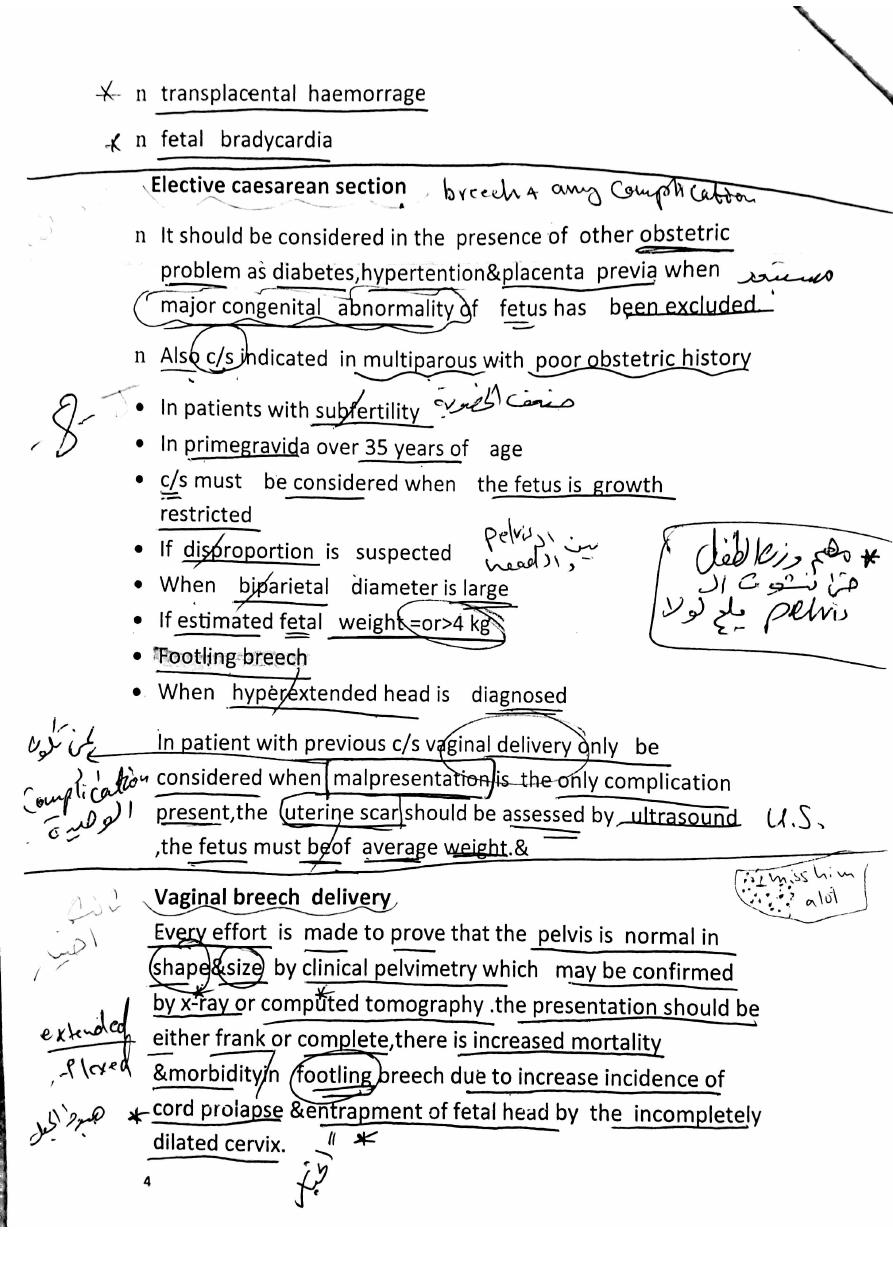 n transplacental haemorrage
n fetal bradycardia
Elective caesarean section
breech + any Complication
n It should be considered in the presence of other obstetric
problem as diabetes,hypertention&placenta previa when
مستبعد
major congenital abnormality of fetus has been excluded.
n Also c/s indicated in multiparous with poor obstetric history
-8-
• In patients with subfertility
ضعف الخصوبة
• In primegravida over 35 years of age
• c/s must be considered when the fetus is growth
restricted
• If disproportion is suspected
بين الـ pelvis
والـ head
• When biparietal diameter is large
• If estimated fetal weight=or>4 kg
* مهم وزن الطفل
حتى نشوف الـ
pelvis يلوح لو لا
• Footling breech
• When hyperextended head is diagnosed
In patient with previous c/s vaginal delivery only be
considered when malpresentation is the only complication
present,the uterine scar should be assessed by ultrasound
U.S.
,the fetus must be of average weight.&
Complication
الوحيدة
Vaginal breech delivery
I miss him
alot
Every effort is made to prove that the pelvis is normal in
shape&size by clinical pelvimetry which may be confirmed
by x-ray or computed tomography .the presentation should be
either frank or complete,there is increased mortality
extended
flexed
&morbidity in footling breech due to increase incidence of
* cord prolapse &entrapment of fetal head by the incompletely
هبوط الحبل
dilated cervix.
" *
4